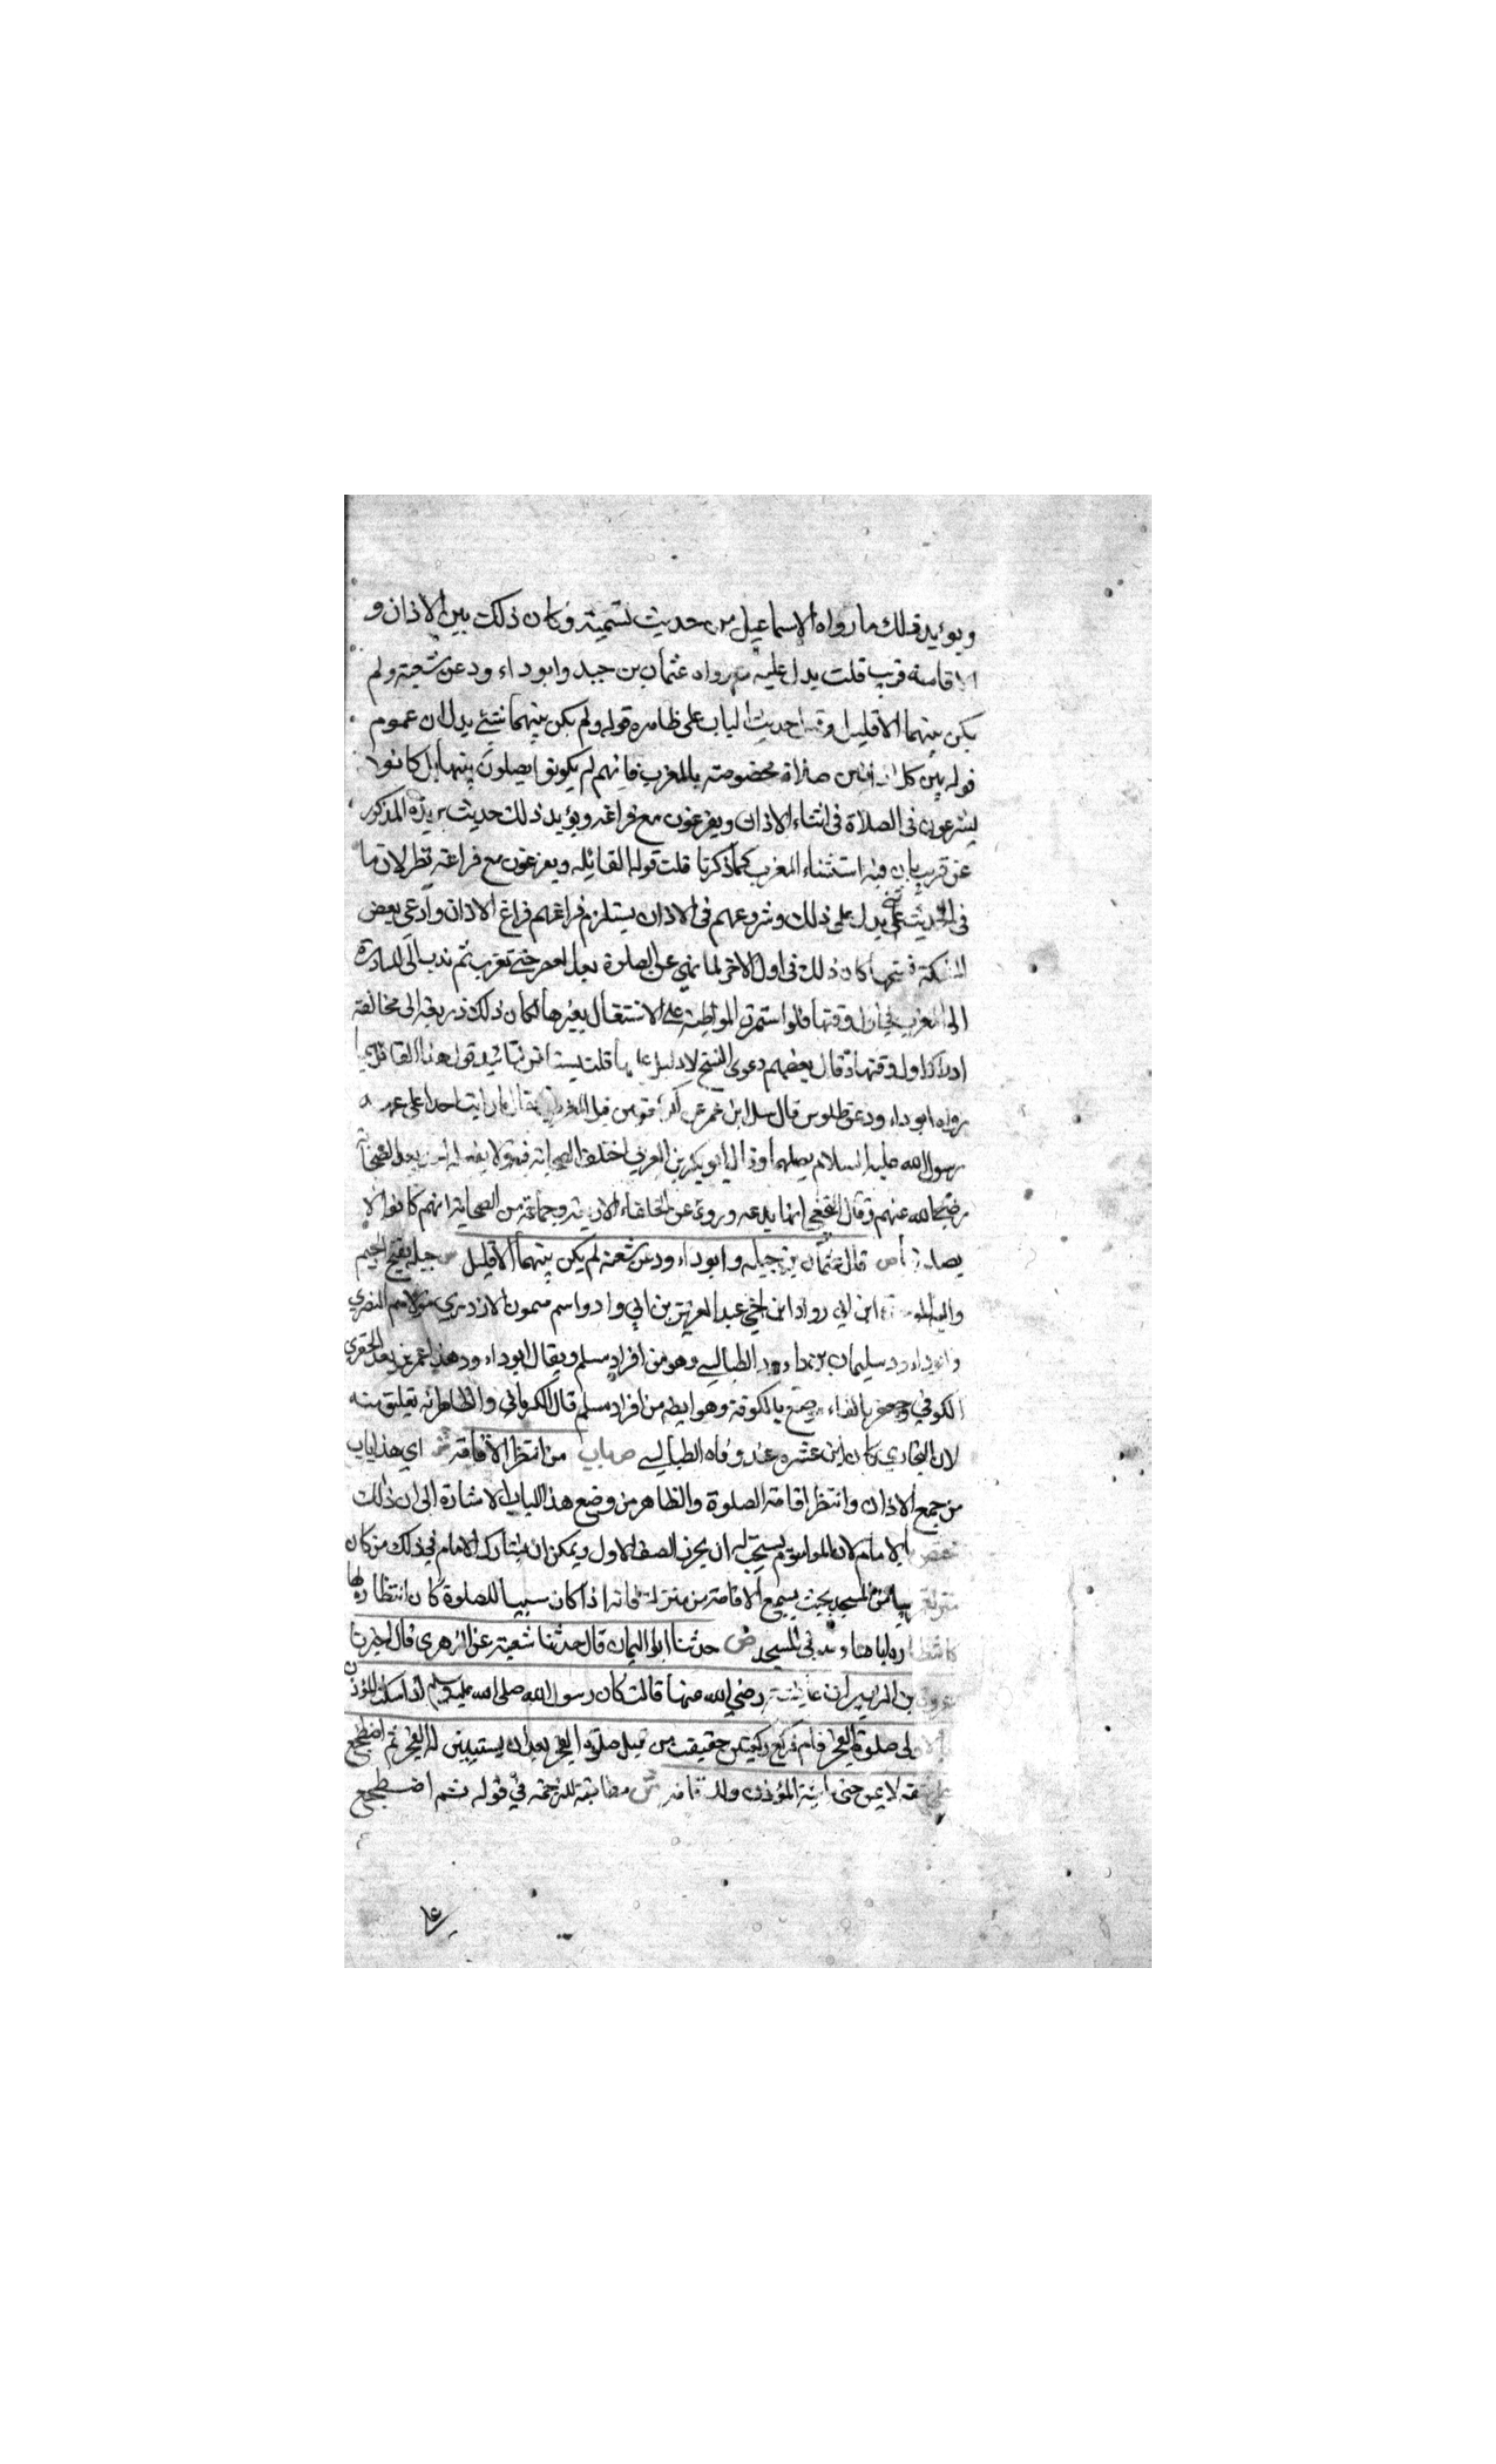 ويؤيد ذلك ما رواه الاسماعيلي من حديث وكان ذلك بين الاذان و
الاقامة قريب قلت يدل عليه رواه عثمان بن جبد وابو داء ود عن شعبة ولم
يكن بينهما الا قليل حديث الباب على ظاهره قوله ولم يكن بينهما شيء يدل ان عموم
قوله بين كل صلاة مخصوصة بالمغرب فانهم لم يكونوا يصلون بينهما بل كانوا
يشرعون في الصلاة في اثناء الاذان ويفرغون مع فراغه ويؤيد ذلك حديث بريدة المذكور
عن قريب بان فيه استثناء المغرب كما ذكرنا قلت قوله القائله ويفرغون مع فراغه نظر لان ما
في الحديث يدل على ذلك وشروعهم في الاذان يستلزم فراغهم فراغ الاذان وادعى بعض
كان ذلك في اول الاخر لما نهي عن الصلوة بعد العصر حتى تغرب ثم ندب الى المبادرة
الى المغرب في اول وقتها فلو استمرت المواظبة على الاشتغال بغيرها لكان ذلك ذريعة الى مخالفة
ادراك اول وقتها وقال بعضهم دعوى النسخ لا دليل عليها قلت قول هذا القائل
رواه ابو داء ود عن طلوس قال سئل ابن عمر عن قبل المغرب فقال ما رايت احدا على عهد
رسول الله عليه السلام يصليهما وقال ابو بكر بن العربي اختلف الصحابة فيه ولا بعد الصحابة
رضي الله عنهم وقال النخعي انها بدعه وروى عن الخلفاء الاربعة وجماعة من الصحابة انهم كانوا لا
ص قال عثمان بن جبله وابو داء ود عن شعبة لم يكن بينهما الا قليل ش جبله بفتح الجيم
ابن ابي رواد ابن اخي عبد العزيز بن ابي وادو اسم ميمون الازدي مولاهم البصري
وابو داء ود سليمان بن داء ود الطيالسي وهو من افراد مسلم ويقال ابو داء ود هذا عمر بن سعد الحفري
الكوفي وحفر بالفاء موضع بالكوفة وهو ايضه من افراد مسلم قال الكرماني والظاهر انه تعليق منه
لان البخاري كان ابن عشر عند وفاه الطيالسي ص باب من انتظر الاقامة ش اي هذا باب
من جمع الاذان وانتظر اقامة الصلوة والظاهر من وضع هذا الباب الاشارة الى ان ذلك
بالامام لان الماموم يستحب له ان يحرز الصف الاول ويمكن ان يشارك الامام في ذلك من كان
من المسجد بحيث يسمع الاقامة من منزله فانه اذا كان سببا للصلوة كان انتظاره لها
اياها وهو في المسجد ص حدثنا ابو اليمان قال حدثنا شعبة عن الزهري قال اخبرنا
عروة بن الزبير ان عايشة رضي الله عنها قالت كان رسول الله صلى الله عليه وسلم اذا سكت المؤذن
صلوة الفجر قام فركع ركعتين حقيقت من قبل صلوة الفجر بعد ان يستبين له الفجر ثم اضطجع
شقه لايمن حتى ياتيه المؤذن ش مطابقة للترجمة في قوله ثم اضطجع